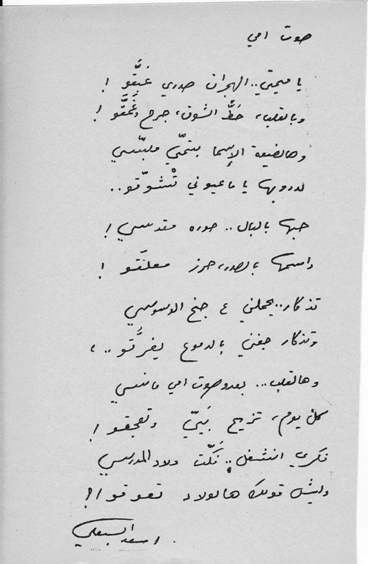 صوت امي
يا ميمتي.. الهجران صدري غبَّقو !
وبالقلب، حَطَّ الشوق، جرح وْغَمَّقو !
وهالضيعة الإسما بتمّي ملبّسي
لدروبها يا ما عيوني تْشوّقو..
حبها بالبال.. صوره مقدسي !
واسمها بالصدر، حرز معلّقو !
تذكار.. يحملني ع جنح الوسوسي
وتذكار جفني بالدموع يغرّقو..،
وهالقلب.. بعدو صوت امي مانسي
كل يوم، تزيح وتعجقو !
فكري انشغل.. تكّت ولاد المدرسي
وليش قولك هالولاد تعوقو !؟
اسعد السبعلي